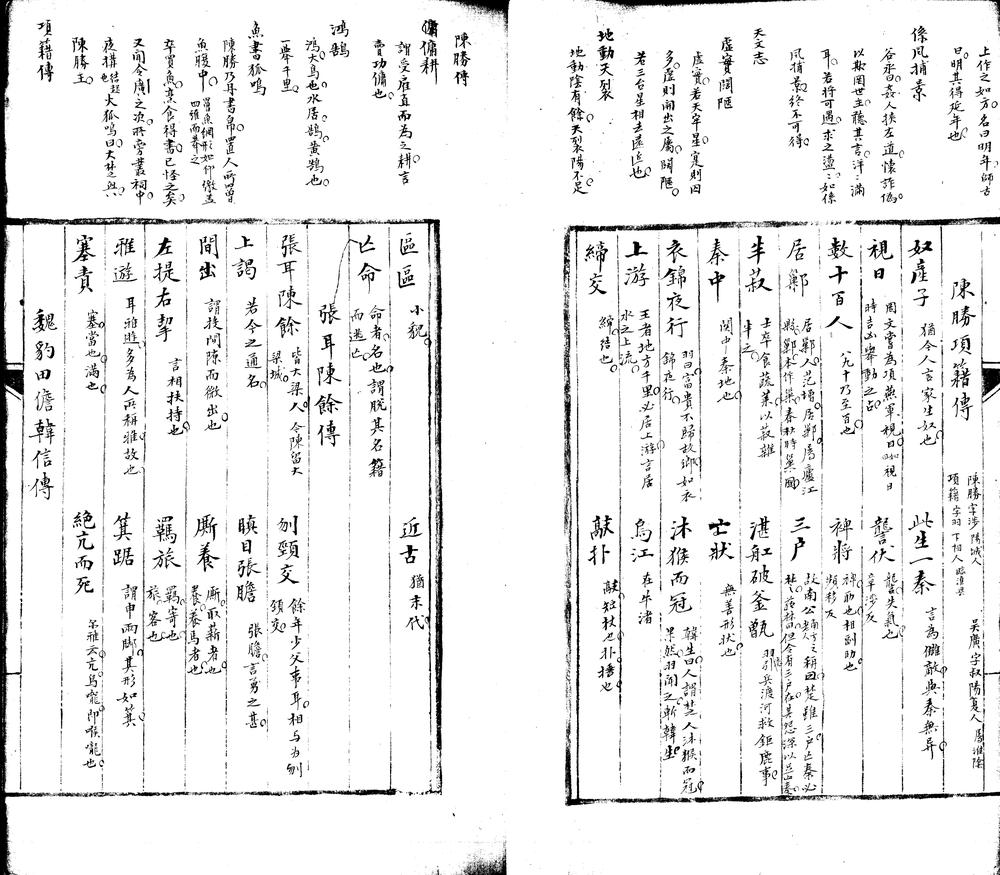 上作之如方名曰明年師古
曰明其得延年也
係風捕景
谷永曰姦人挟左道懷詐偽
以欺罔世主聽其言洋〻滿
耳若將可遇求之盪〻如係
風捕景終不可得
天文志
虛實闊陿
虛實若天牢星實則囚
多虛則開出之屬闊陿
若三台星相去遠近也
地動天裂
地動陰有餘天裂陽不足
陳勝項籍傳
陳勝字涉陽城人
項籍字羽下相人臨淮縣
吳廣字叔陽夏人屬淮陽
奴產子 猶今人言家生奴也
此生一秦 言為讎敵與秦無異
視日 周文嘗為項燕軍視日如視日
時吉凶舉動之占
讋伏 讋失氣也
章涉反
數十百人 八九十乃至百也
裨將 裨助也相副助也
頻移反
居鄛 居鄛人范增居鄛屬廬江
縣鄛本作巢春秋時巢國
三戶 故南公南方之老人稱曰楚雖三戶亡秦必
楚
半菽 士卒食蔬菜以菽雜
半之
湛舡破釜甑 羽引兵渡河救鉅鹿事
秦中 関中秦地也
亡狀 無善形狀也
衣錦夜行 羽曰富貴不歸故鄉如衣
錦夜行
沐猴而冠 韓生曰人謂楚人沐猴而冠
果然羽聞之斬韓生
上游 王者地方千里必居上游言居
水之上流
烏江 在牛渚
締交 締結也
敲扑 敲短杖也扑捶也
陳勝傳
傭傭耕
謂受雇直而為之耕言
賣功傭也
鴻鵠
鴻大鳥也水居鵠黃鵠也
一舉千里
魚書狐鳴
陳勝乃丹書帛置人所罾
魚腹中 罾魚網形如仰繖蓋
四維而舉之
卒買魚烹食得書已怪之矣
又間令廣之次所旁叢祠中
夜構 結起也 火狐鳴曰大楚興〻
陳勝王
項籍傳
區區 小貌
近古 猶末代
亡命 命者名也謂脫其名籍
而逃亡
張耳陳餘傳
張耳陳餘 皆大梁人今陳留大
梁城
刎頸交 餘年少父事耳相与為刎
頸交
上謁 若今之通名
瞋目張膽 張膽言勇之甚
間出 謂投間隙而微出也
廝養 廝取薪者也
養養馬者也
左提右挈 言相扶持也
羈旅 羈寄也
旅客也
雅遊 耳雅遊多為人所稱雅故也
箕踞 謂申兩脚其形如箕
塞責 塞當也滿也
絕亢而死 尔雅云亢鳥嚨即喉嚨也
魏豹田儋韓信傳